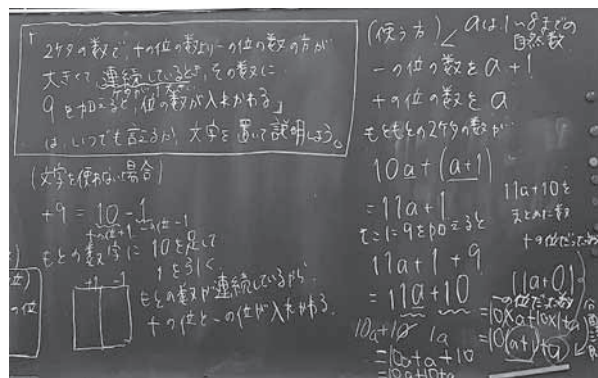 「2ケタの数で、十の位の数より一の位の数の方が
大きくて、連続しているとき、その数に
9を加えると、位の数が入れかわる」
は、いつでも言えるか、文字を置いて説明しよう。
(文字を使わない場合)
+9 = 10 - 1
十の位+1 一の位-1
もとの数字に10を足して
1を引く
+1 -1
もとの数が連続しているから
十の位と一の位が入れかわる
(使う方) aは1~8までの
自然数
一の位の数をa+1
十の位の数をa
もともとの2ケタの数が
10a+(a+1)
=11a+1
そこに9を加えると
11a+1+9
=11a+10
11a+10を
まとめた数
10a+10 1a
=10a+a+10
=10a+10+a
=10×a+10×1+a
=10(a+1)+a